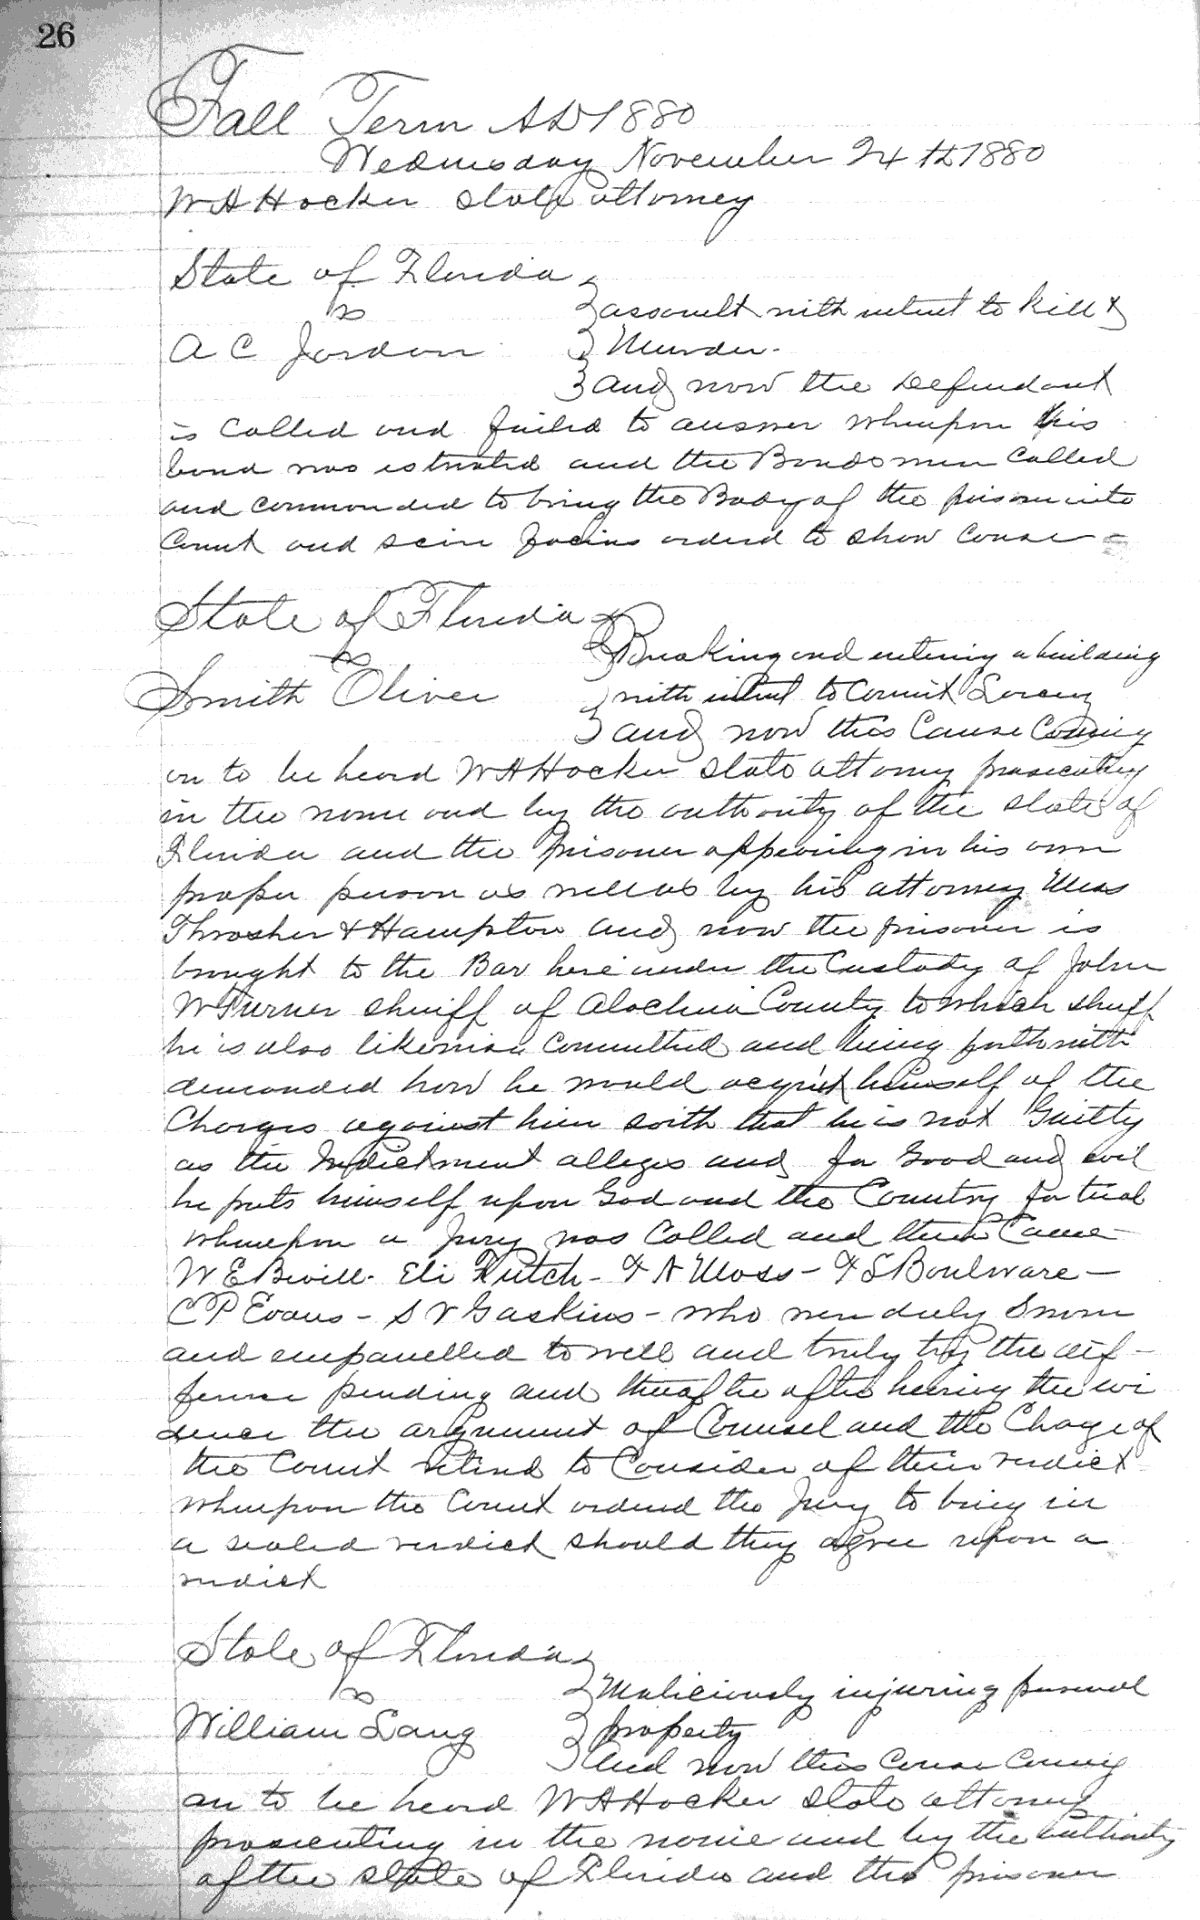 26
Fall Term AD 1880
Wednesday November 24th 1880
W A Hocker State attorney
State of Florida
vs
assault with intent to kill &
A C Jordan
Murder.
and now the Defendant
is Called and failed to answer whereupon his
bond was estreated and the Bondsmen Called
and commanded to bring the Body of the prisoner into
Court and scire facias ordered to show Cause -
State of Florida
vs
Breaking and entering a building
Smith Oliver
with intent to Commit Larceny
and now this Cause Coming
on to be heard W A Hocker State attorney prosecuting
in the name and by the authority of the State of
Florida and the prisoner appearing in his own
proper person as well as by his attorney Mess
Thrasher & Hampton and now the prisoner is
brought to the Bar here under the Custody of John
W Turner Sheriff of Alachua County to which sheriff
he is also likewise Committed and being forthwith
demanded how he would acquit himself of the
Charges against him saith that he is not Guilty
as the Indictment alleges and for Good and evil
he puts himself upon God and the Country for trial
whereupon a Jury was Called and then Came
W E Bivill - Eli Futch - F A Moss - F S Boulware -
C P Evans - S V Gaskins - who were duly Sworn
and empanelled to well and truly try the dif-
ference pending and thereafter after hearing the evi
dence the argument of Counsel and the Charge of
the Court retired to Consider of their verdict
whereupon the Court ordered the Jury to bring in
a sealed verdict should they agree upon a
verdict
State of Florida
vs
Maliciously injuring personal
William Lang
property
And now this Cause Coming
on to be heard W A Hocker State attorney
prosecuting in the name and by the authority
of the State of Florida and the prisoner